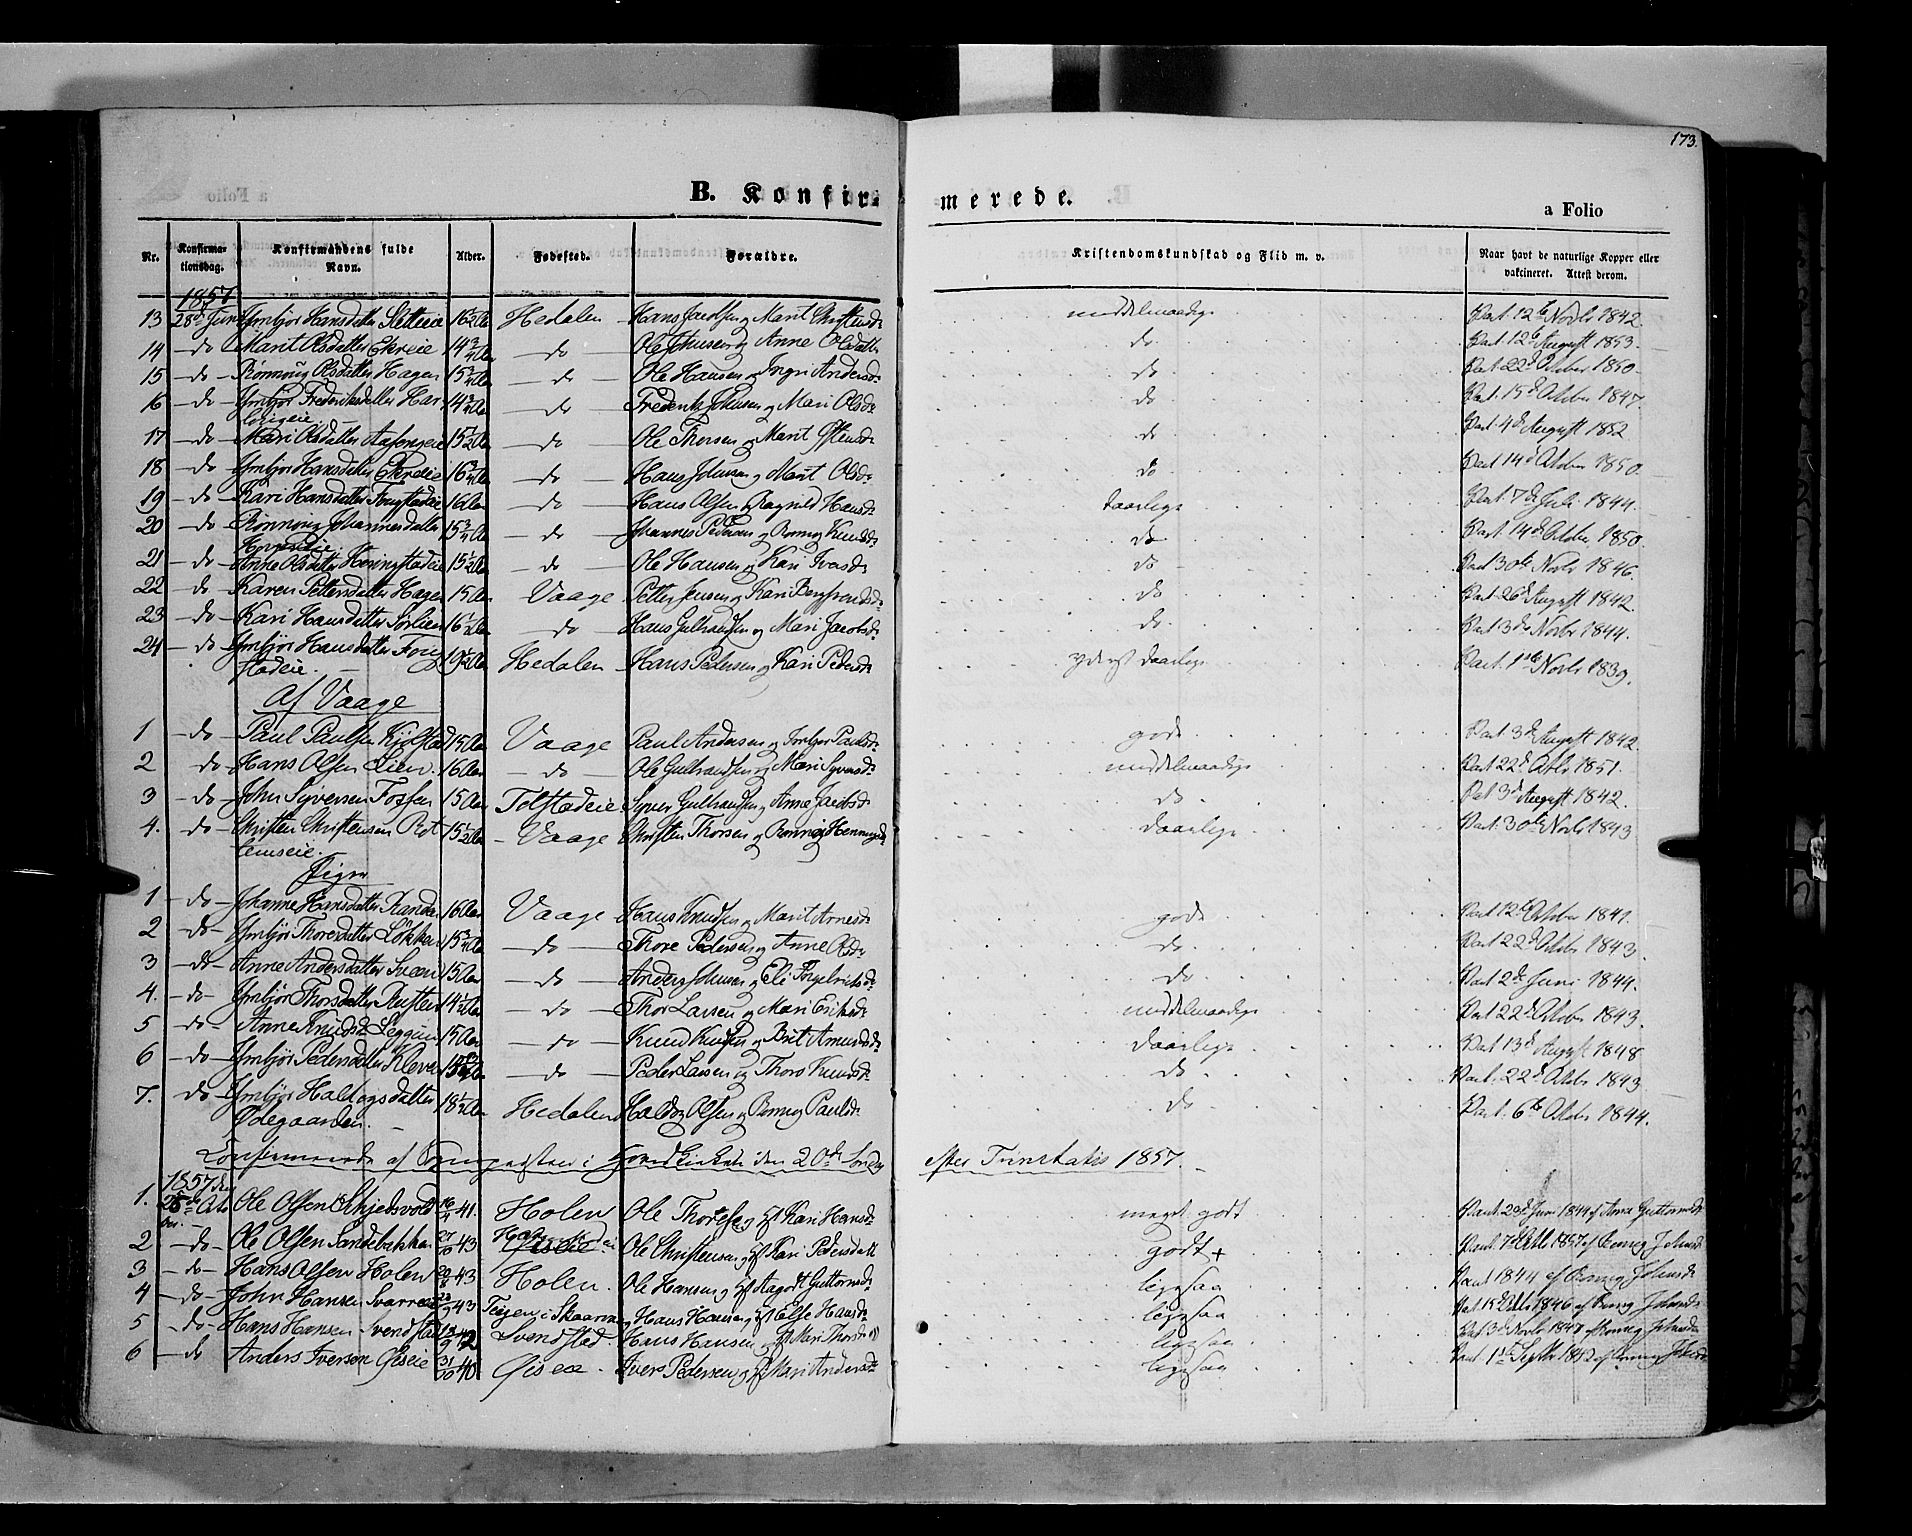 173.
B. Konfir- merede.
a Folio
Nr. Konfirmationsdag. Konfirmandens fulde Navn. Alder. Fødested. Forældre. Kristendomskundskab og Flid m. v. Naar havt de naturlige Kopper eller vakcineret. Attest derom.
1857
13 28de Juni Ymbjør Hansdatter Sletteie 16 1/2 Aar Hedalen Hans Jacobsen og Marit Christensdr middelmaadige Vact. 12te Novbr 1842.
14 — do — Marit Olsdatter Ekreie 14 3/4 Aar — do — Ole Johnsen og Anne Olsdatter do Vact. 12te August 1853.
15 — do — Rønnoug Olsdatter Hagen 15 3/4 Aar — do — Ole Hansen og Ingri Andersdr do Vact 22de October 1850
16 — do — Ymbjør Frederiksdatter Har- 14 3/4 Aar — do — Frederik Johnsen og Mari Olsdr do Vact. 15de October 1847.
17 — do — Mari Olsdatter 15 1/2 Aar — do — Ole Thorsen og Marit do Vact. 4de August 1852
18 — do — Ymbjør Hansdatter Ekreie 16 3/4 Aar — do — Hans Johnsen og Marit Olsdr do Vact 14de October 1850.
19 — do — Kari Hansdatter 16 Aar — do — Hans Olsen og Ragnild Hansdr daarlige Vact. 7de Juli 1844.
20 — do — Rønnoug Johannesdatter 15 3/4 Aar — do — Johannes Pedersen og Rønnoug Knudsdr do Vact. 14de October 1850.
21 — do — Anne Olsdatter Heringstadeie 15 1/2 Aar — do — Ole Hansen og Kari Iversdr do Vact 30te Novbr 1846.
22 — do — Karen Pettersdatter Hagen 15 Aar Vaage Petter Jensen og Kari do Vact 26de August 1842.
23 — do — Kari Hansdatter Sørlien 16 1/2 Aar — do — Hans Gulbrandsen og Mari Jacobsdr do Vact 3de Novbr 1844.
24 — do — Ymbjør Hansdatter Foug- 19 1/2 Aar Hedalen Hans Pedersen og Kari Pedersdr yderst daarlige Vact. 1ste Novbr 1839.
stadeie. —
Af Vaage
1 — do — Paul Paulsen Kjølstad 15 Aar Vaage Paul Andersen og Ymbjør Paulsdr gode Vact 3de August 1842.
2 do Hans Olsen Lien. 16 Aar — do — Ole Gulbrandsen og Mari Syversdr middelmaadige Vact 22de Octbr 1851.
3 — do — John Syversen Fossen 15 Aar Tolstadeie Syver Gulbrandsen og Anne Jacobsdr do Vact 3de August 1842.
4. — do — Christen Christensen Rot- 15 1/2 Aar — Vaage Christen Thorsen og Rønnoug Henningsdr daarlige Vact. 30te Novbr 1843
temseie.
Piger
1 — do — Johanne Hansdatter Randen 16 Aar Vaage Hans Knudsen og Marit Arnesdr gode Vact 12te October 1841.
2 — do — Ymbjør Thoresdatter Løkken 15 3/4 Aar — do — Thore Pedersen og Anne Olsdr do Vact 22de Octbr 1843.
3 — do — Anne Andersdatter Sveen 15 Aar — do — Anders Johnsen og Eli do Vact 2de Juni 1844.
4. — do — Ymbjør Thorsdatter Rusten 14 1/2 Aar — do — Thor Larsen og Mari Eriksdr middelmaadige Vact 22de October 1843.
5 — do — Anne Knudsdr 15 Aar — do — Knud Knudsen og Brit Amundsdr daarlige Vact 13de August 1848
6 — do — Ymbjør Pedersdatter Kleven — do — Peder Larsen og Thora Knudsdr do Vact. 22de Octbr 1843
7. do Ymbjør Haldogsdatter 18 1/2 Aar Hedalen Haldog Olsen og Rønnoug Paulsdr do Vact. 6te Octbr 1844.
Ødegaarden. —
Confirmerede af Sognepresten i Hovedkirken den 20de Søndag efter Trinitatis 1857. —
1857 den
1. 25de Octo- Ole Olsen Skjedsvold 16/4 41. Holen Ole Thoresen og Hst Kari Hansdr meget godt Vact. 23de Juni 1844 af Anne Guttormsdr
ber. —
2 — do — Ole Olsen Sandebakken 27/10 43 Ole Christensen og Hst Kari Pedersdatter godt + Vact. 7de Octbr 1857 af Rønnoug Johnsdr
3 — do — Hans Olsen Holen 20/8 43 Holen. Ole Hansen og Hst Aagodt Guttormsdr ligesaa Vact 1844 af Rønnoug Johnsdr
4 — do — John Hansen 43 Teigen i Skaarvang Hans Hansen og Hst Else Hansdr ligesaa Vact 15de Octbr 1846 af Rønnoug Johnsdr
5 — do — Hans Hansen Svendstad 42 Svendsted. Hans Hansen og Hst Mari Thorsdr ligesaa Vact 3de Novbr 1847 af Rønnoug Johnsdr
6 — do Anders Iversen Øiseie 31/10 40 Øiseie. Iver Pedersen og Hst Mari Andersdr ligesaa Vact. 1ste Septbr 1842 af Rønnoug Johnsdr